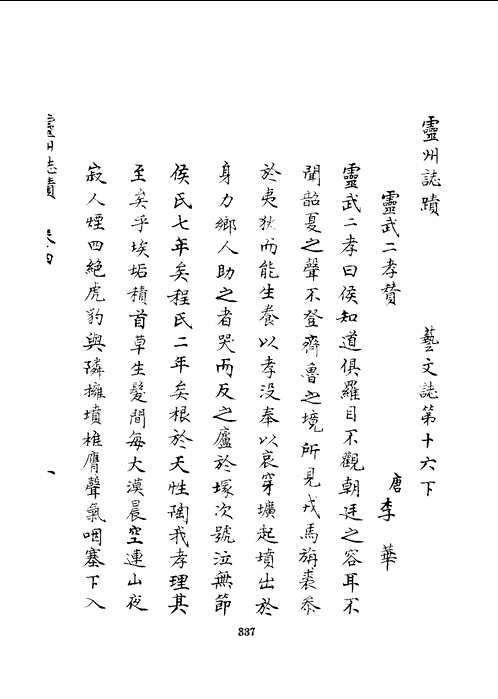 靈州誌蹟　藝文誌第十六下
靈武二孝贊　唐李華
靈武二孝曰侯知道俱羅目不觀朝廷之容耳不
聞韶夏之聲不登齊魯之境所見戎馬旃裘忝
於夷狄而能生養以孝没奉以哀穿壙起墳出於
身力鄉人助之者哭而反之廬於塚次號泣無節
侯氏七年矣程氏二年矣根於天性陶我孝理其
至矣乎埃垢積首草生髮間每大漠晨空連山夜
寂人煙四絶虎豹與隣擁墳椎膺聲氣咽塞下入
靈州誌蹟　卷四　一
337